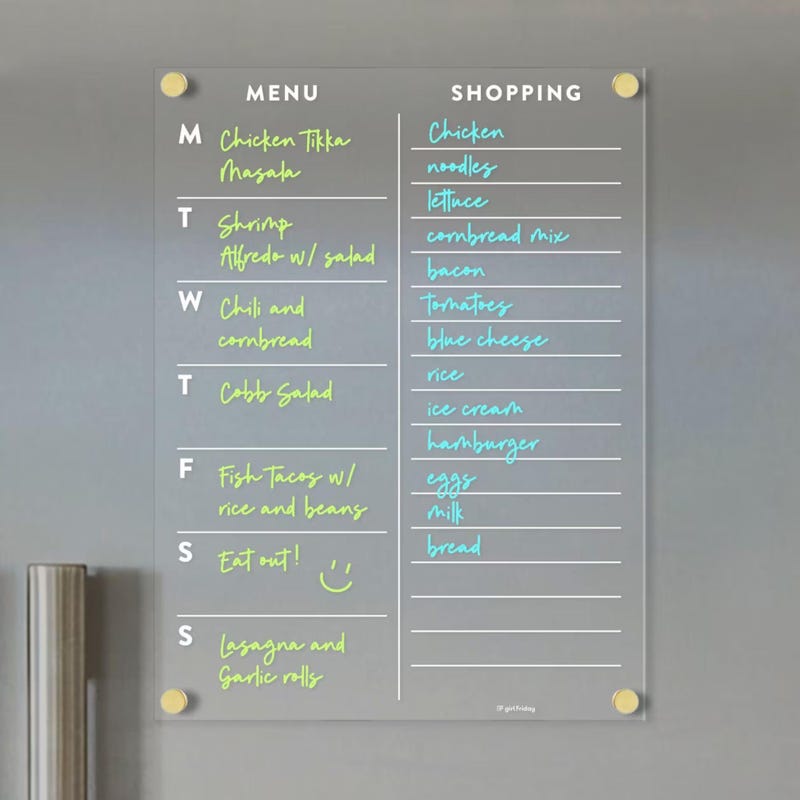 MENU
M
Chicken Tikka
Masala
T
Shrimp
Alfredo w/ salad
W
Chili and
cornbread
T
Cobb Salad
F
Fish Tacos w/
rice and beans
S
Eat out!
S
Lasagna and
Garlic rolls
SHOPPING
Chicken
noodles
lettuce
cornbread mix
bacon
tomatoes
blue cheese
rice
ice cream
hamburger
eggs
milk
bread
girl friday